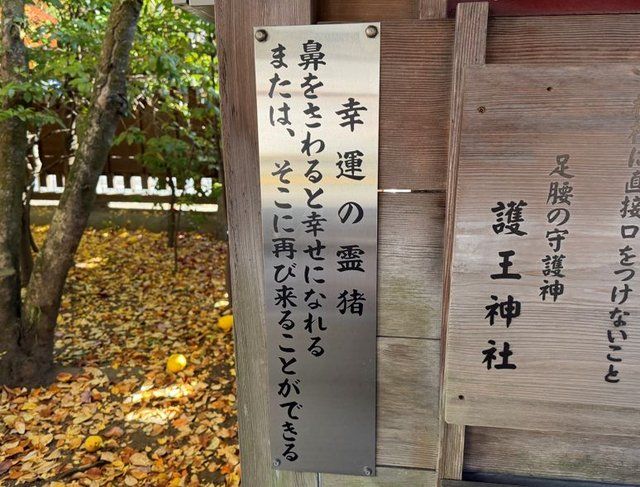 幸運の霊猪
鼻をさわると幸せになれる
または、そこに再び来ることができる
は直接口をつけないこと
足腰の守護神
護王神社